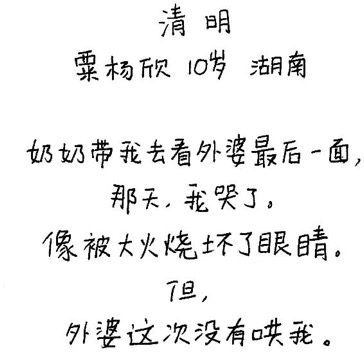 清明
粟杨欣 10岁 湖南
奶奶带我去看外婆最后一面,
那天,我哭了。
像被大火烧坏了眼睛。
但,
外婆这次没有哄我。